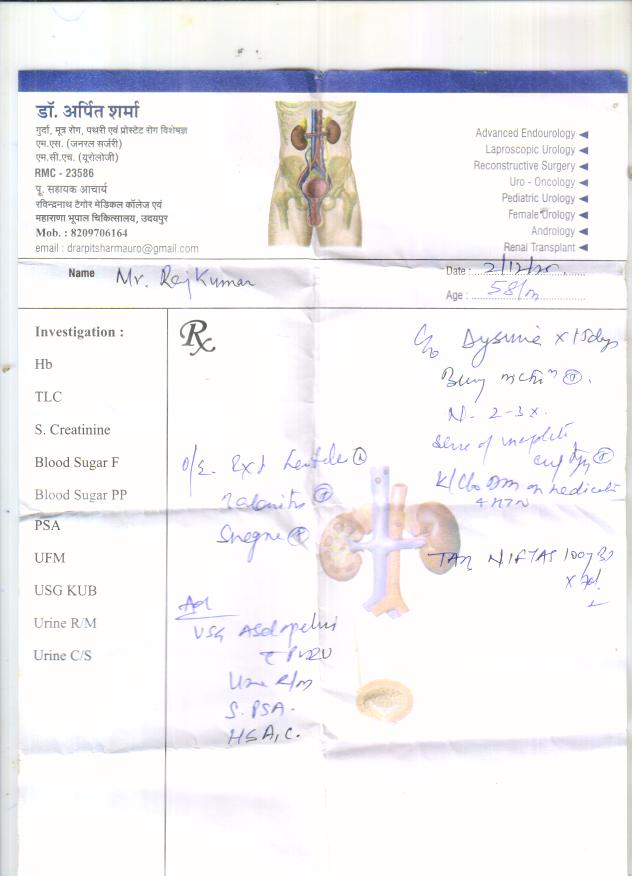 डॉ. अर्पित शर्मा
गुर्दा, मूत्र रोग, पथरी एवं प्रोस्टेट रोग विशेषज्ञ
एम.एस. (जनरल सर्जरी)
एम.सी.एच. (यूरोलोजी)
RMC - 23586
पू. सहायक आचार्य
रविन्द्रनाथ टैगोर मेडिकल कॉलेज एवं
महाराणा भूपाल चिकित्सालय, उदयपुर
Mob. : 8209706164
email : drarpitsharmauro@gmail.com
Advanced Endourology
Laproscopic Urology
Reconstructive Surgery
Uro - Oncology
Pediatric Urology
Female Urology
Andrology
Renai Transplant
Name Mr. Rajkumar
Date : 2/12/20
Age : 58/m
Investigation :
Hb
TLC
S. Creatinine
Blood Sugar F
Blood Sugar PP
PSA
UFM
USG KUB
Urine R/M
Urine C/S
Rx
C/o Dysuria x 15 days
N - 2-3 x.
sense of incomplete
K/C/o DM on medication
HTN
O/E.
TAB NIFTAS 100
Adv
USG Abd & pelvis
c PVRU
Urine R/M
S. PSA.